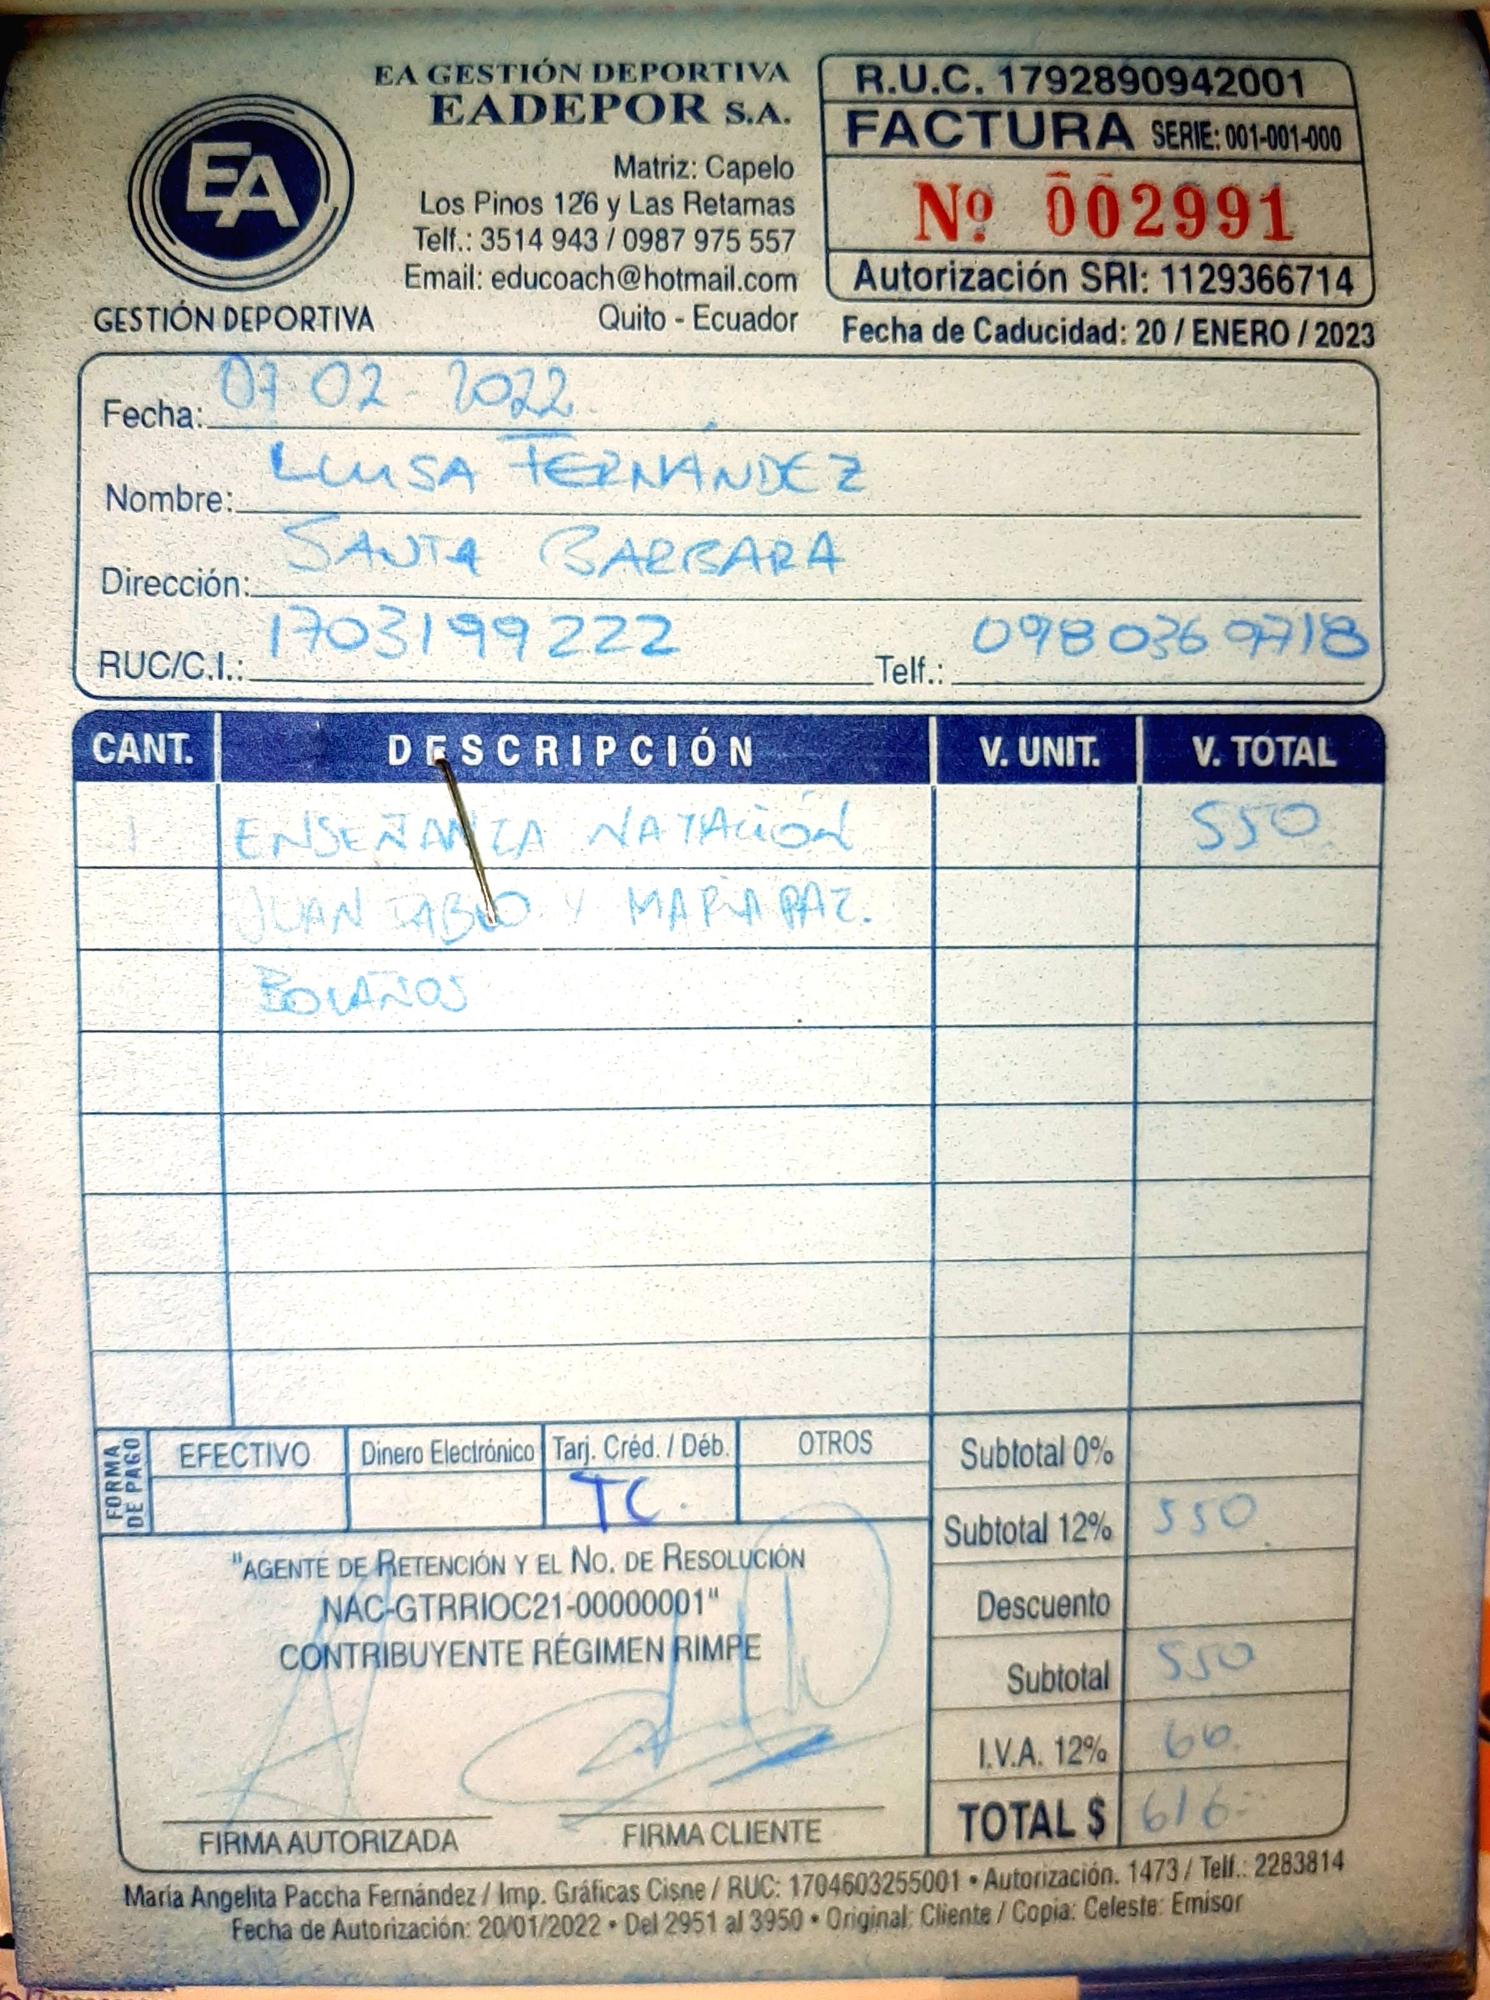 EA GESTIÓN DEPORTIVA
EADEPOR S.A.
Matriz: Capelo
Los Pinos 126 y Las Retamas
Telf.: 3514 943 / 0987 975 557
Email: educoach@hotmail.com
Quito - Ecuador
EA
GESTIÓN DEPORTIVA
R.U.C. 1792890942001
FACTURA SERIE: 001-001-000
Nº 002991
Autorización SRI: 1129366714
Fecha de Caducidad: 20 / ENERO / 2023
Fecha: 07 02 - 2022
Nombre: LUISA FERNÁNDEZ
Dirección: SANTA BARBARA
RUC/C.I.: 1703199222 Telf.: 0980369718
CANT. DESCRIPCIÓN V. UNIT. V. TOTAL
1 ENSEÑANZA NATACIÓN 550
JUAN PABLO Y MARIA PAZ.
BOLAÑOS
FORMA DE PAGO
EFECTIVO Dinero Electrónico Tarj. Créd. / Déb. OTROS
TC.
Subtotal 0%
Subtotal 12% 550
Descuento
Subtotal 550
I.V.A. 12% 66.
TOTAL $ 616-
"AGENTE DE RETENCIÓN Y EL NO. DE RESOLUCIÓN
NAC-GTRRIOC21-00000001"
CONTRIBUYENTE RÉGIMEN RIMPE
FIRMA AUTORIZADA FIRMA CLIENTE
María Angelita Paccha Fernández / Imp. Gráficas Cisne / RUC: 1704603255001 • Autorización. 1473 / Telf.: 2283814
Fecha de Autorización: 20/01/2022 • Del 2951 al 3950 • Original: Cliente / Copia: Celeste: Emisor